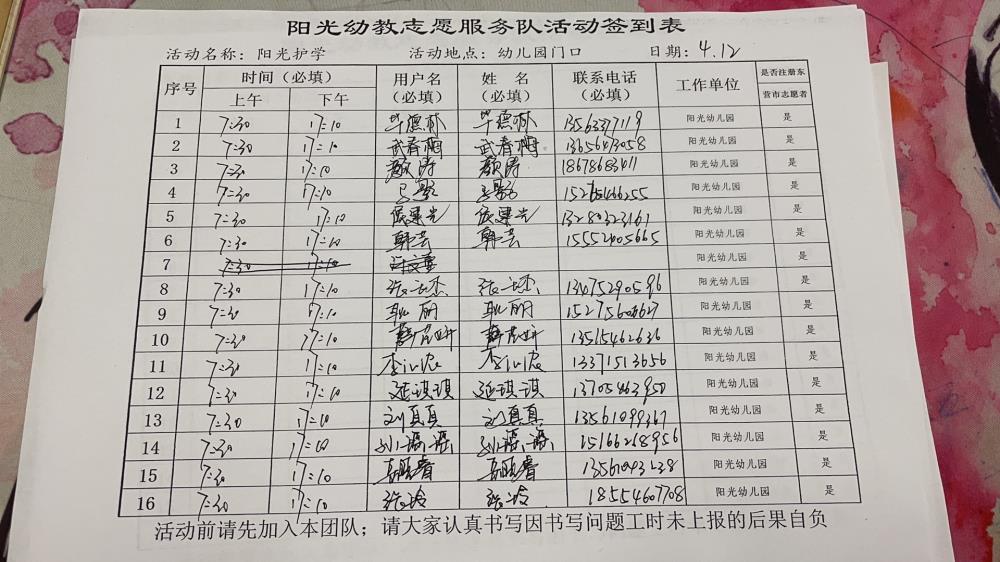 阳光幼教志愿服务队活动签到表
活动名称：阳光护学 活动地点：幼儿园门口 日期：4.12
序号 时间（必填） 用户名（必填） 姓 名（必填） 联系电话（必填） 工作单位 是否注册东营市志愿者
上午 下午
1 7:30 17:10 毕德林 毕德林 13563377119 阳光幼儿园 是
2 7:30 17:10 武春梅 武春梅 13656473058 阳光幼儿园 是
3 7:30 17:10 颜涛 颜涛 18678683411 阳光幼儿园 是
4 7:30 17:10 阳光幼儿园 是
5 7:30 17:10 侯建光 侯建光 13280323161 阳光幼儿园 是
6 7:30 17:10 韩芸 韩芸 15552005665 阳光幼儿园 是
7 7:30 17:10 阳光幼儿园 是
8 7:30 17:10 张云杰 张云杰 13475290596 阳光幼儿园 是
9 7:30 17:10 耿丽 耿丽 阳光幼儿园 是
10 7:30 17:10 13515462636 阳光幼儿园 是
11 7:30 17:10 13371513656 阳光幼儿园 是
12 7:30 17:10 延琪琪 延琪琪 13705463950 阳光幼儿园 是
13 7:30 17:10 刘真真 刘真真 13561099367 阳光幼儿园 是
14 7:30 17:10 15166268956 阳光幼儿园 是
15 7:30 17:10 阳光幼儿园 是
16 7:30 17:10 张玲 张玲 18554607708 阳光幼儿园 是
活动前请先加入本团队；请大家认真书写因书写问题工时未上报的后果自负